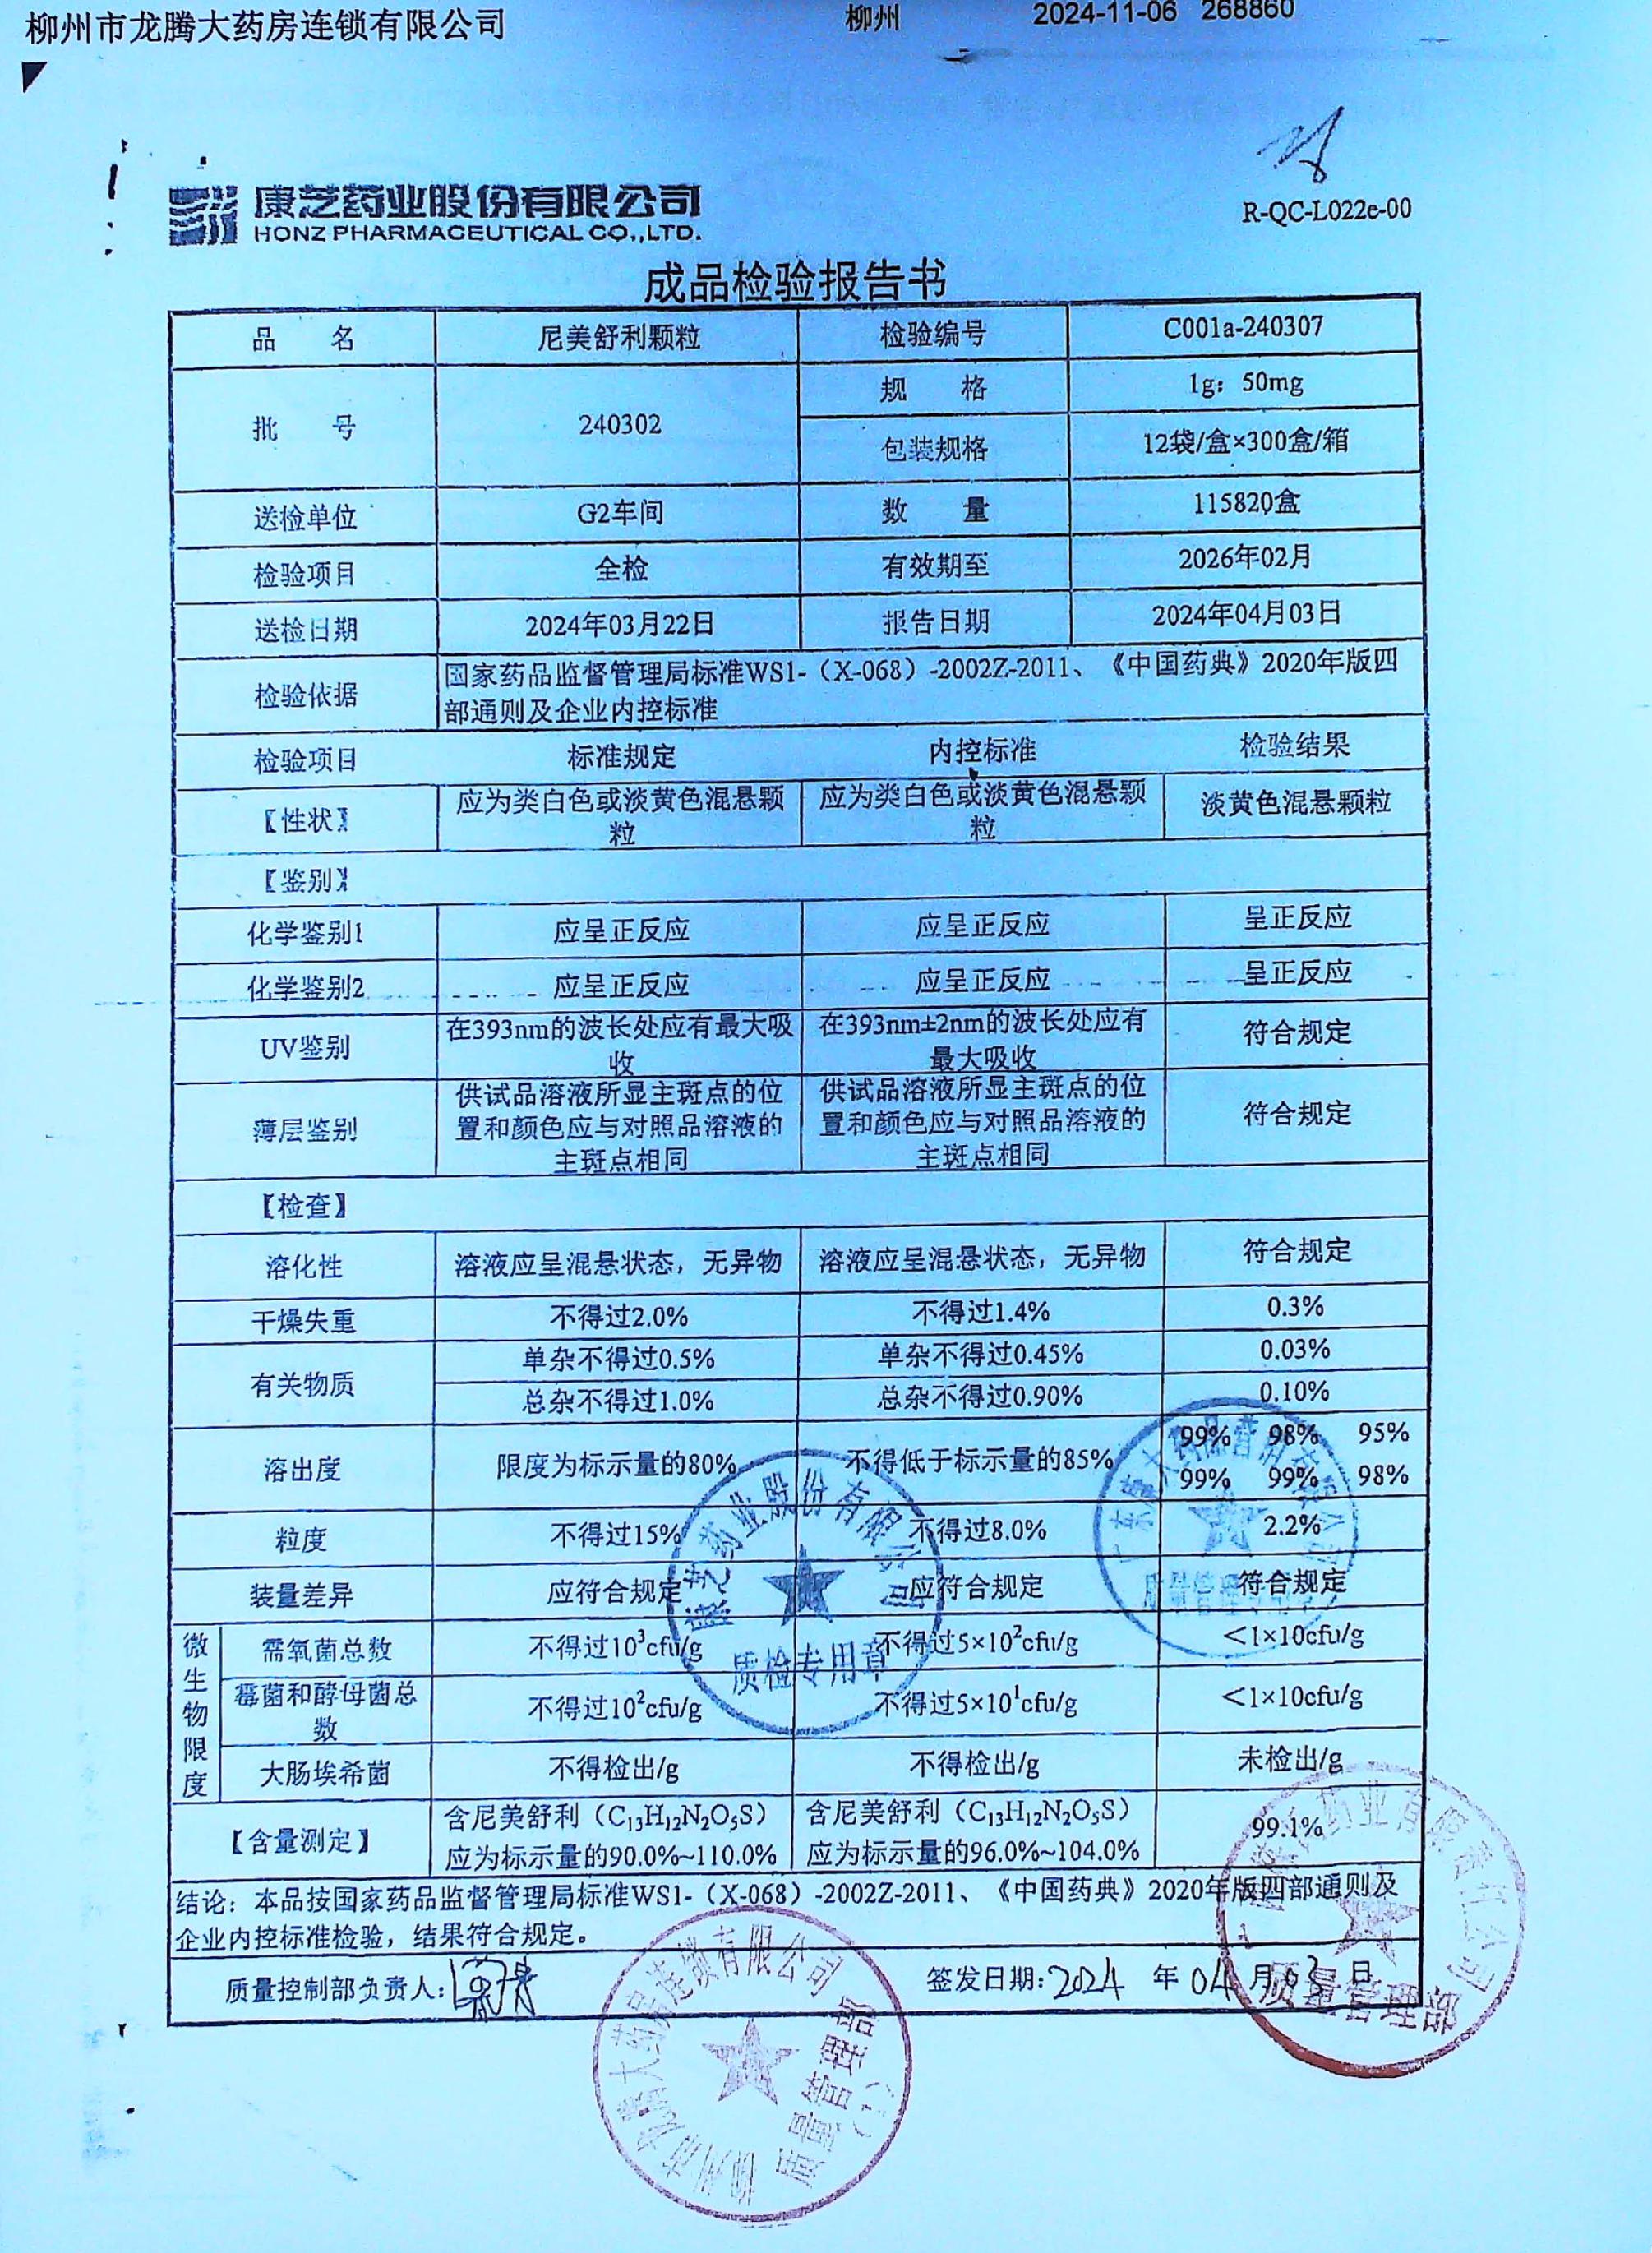 柳州市龙腾大药房连锁有限公司 柳州 2024-11-06 268860
康芝药业股份有限公司
HONZ PHARMACEUTICAL CO.,LTD.
R-QC-L022e-00
成品检验报告书
品 名 尼美舒利颗粒 检验编号 C001a-240307
批 号 240302 规 格 1g：50mg
包装规格 12袋/盒×300盒/箱
送检单位 G2车间 数 量 115820盒
检验项目 全检 有效期至 2026年02月
送检日期 2024年03月22日 报告日期 2024年04月03日
检验依据 国家药品监督管理局标准WS1-（X-068）-2002Z-2011、《中国药典》2020年版四
部通则及企业内控标准
检验项目 标准规定 内控标准 检验结果
【性状】 应为类白色或淡黄色混悬颗 应为类白色或淡黄色混悬颗 淡黄色混悬颗粒
粒 粒
【鉴别】
化学鉴别1 应呈正反应 应呈正反应 呈正反应
化学鉴别2 应呈正反应 应呈正反应 呈正反应
UV鉴别 在393nm的波长处应有最大吸 在393nm±2nm的波长处应有 符合规定
收 最大吸收
薄层鉴别 供试品溶液所显主斑点的位 供试品溶液所显主斑点的位 符合规定
置和颜色应与对照品溶液的 置和颜色应与对照品溶液的
主斑点相同 主斑点相同
【检查】
溶化性 溶液应呈混悬状态，无异物 溶液应呈混悬状态，无异物 符合规定
干燥失重 不得过2.0% 不得过1.4% 0.3%
有关物质 单杂不得过0.5% 单杂不得过0.45% 0.03%
总杂不得过1.0% 总杂不得过0.90% 0.10%
溶出度 限度为标示量的80% 不得低于标示量的85% 99% 98% 95%
99% 99% 98%
粒度 不得过15% 不得过8.0% 2.2%
装量差异 应符合规定 应符合规定 符合规定
微生物限度 需氧菌总数 不得过10³cfu/g 不得过5×10²cfu/g ＜1×10cfu/g
霉菌和酵母菌总 不得过10²cfu/g 不得过5×10¹cfu/g ＜1×10cfu/g
数
大肠埃希菌 不得检出/g 不得检出/g 未检出/g
【含量测定】 含尼美舒利（C₁₃H₁₂N₂O₅S） 含尼美舒利（C₁₃H₁₂N₂O₅S） 99.1%
应为标示量的90.0%~110.0% 应为标示量的96.0%~104.0%
结论：本品按国家药品监督管理局标准WS1-（X-068）-2002Z-2011、《中国药典》2020年版四部通则及
企业内控标准检验，结果符合规定。
质量控制部负责人： 签发日期：2024 年 04 月 03 日
康芝药业股份有限公司
质检专用章
药业有限责任公司
质量管理部
柳州市龙腾大药房连锁有限公司
质量管理部